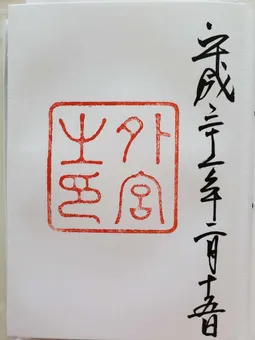 平成二十五年二月十五日
外宮
之印